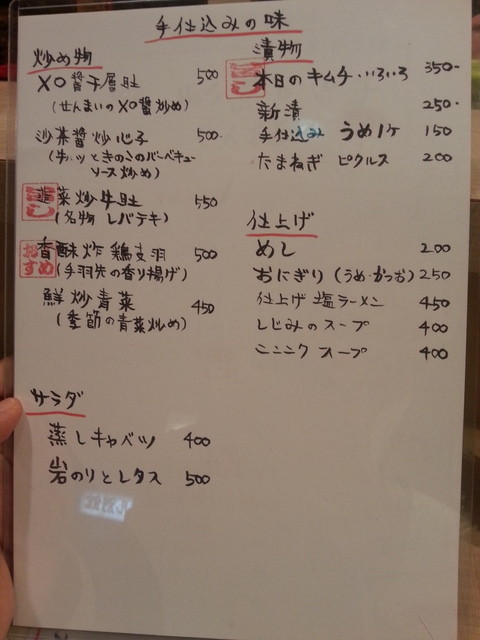 手仕込みの味
炒め物
XO醤千層肚 500
(せんまいのXO醤炒め)
沙茶醤炒心子 500
(牛ハツときのこのバーベキュー
ソース炒め)
韮菜炒牛肚 550
(名物 レバテキ)
おすすめ
香酥炸鶏支羽 500
(手羽先の香り揚げ)
鮮炒青菜 450
(季節の青菜炒め)
サラダ
蒸しキャベツ 400
岩のりとレタス 500
漬物
本日のキムチ・いろいろ 350
新漬 250
手仕込み うめ1ケ 150
たまねぎ ピクルス 200
仕上げ
めし 200
おにぎり(うめ・かつお) 250
仕上げ塩ラーメン 450
しじみのスープ 400
ニンニクスープ 400